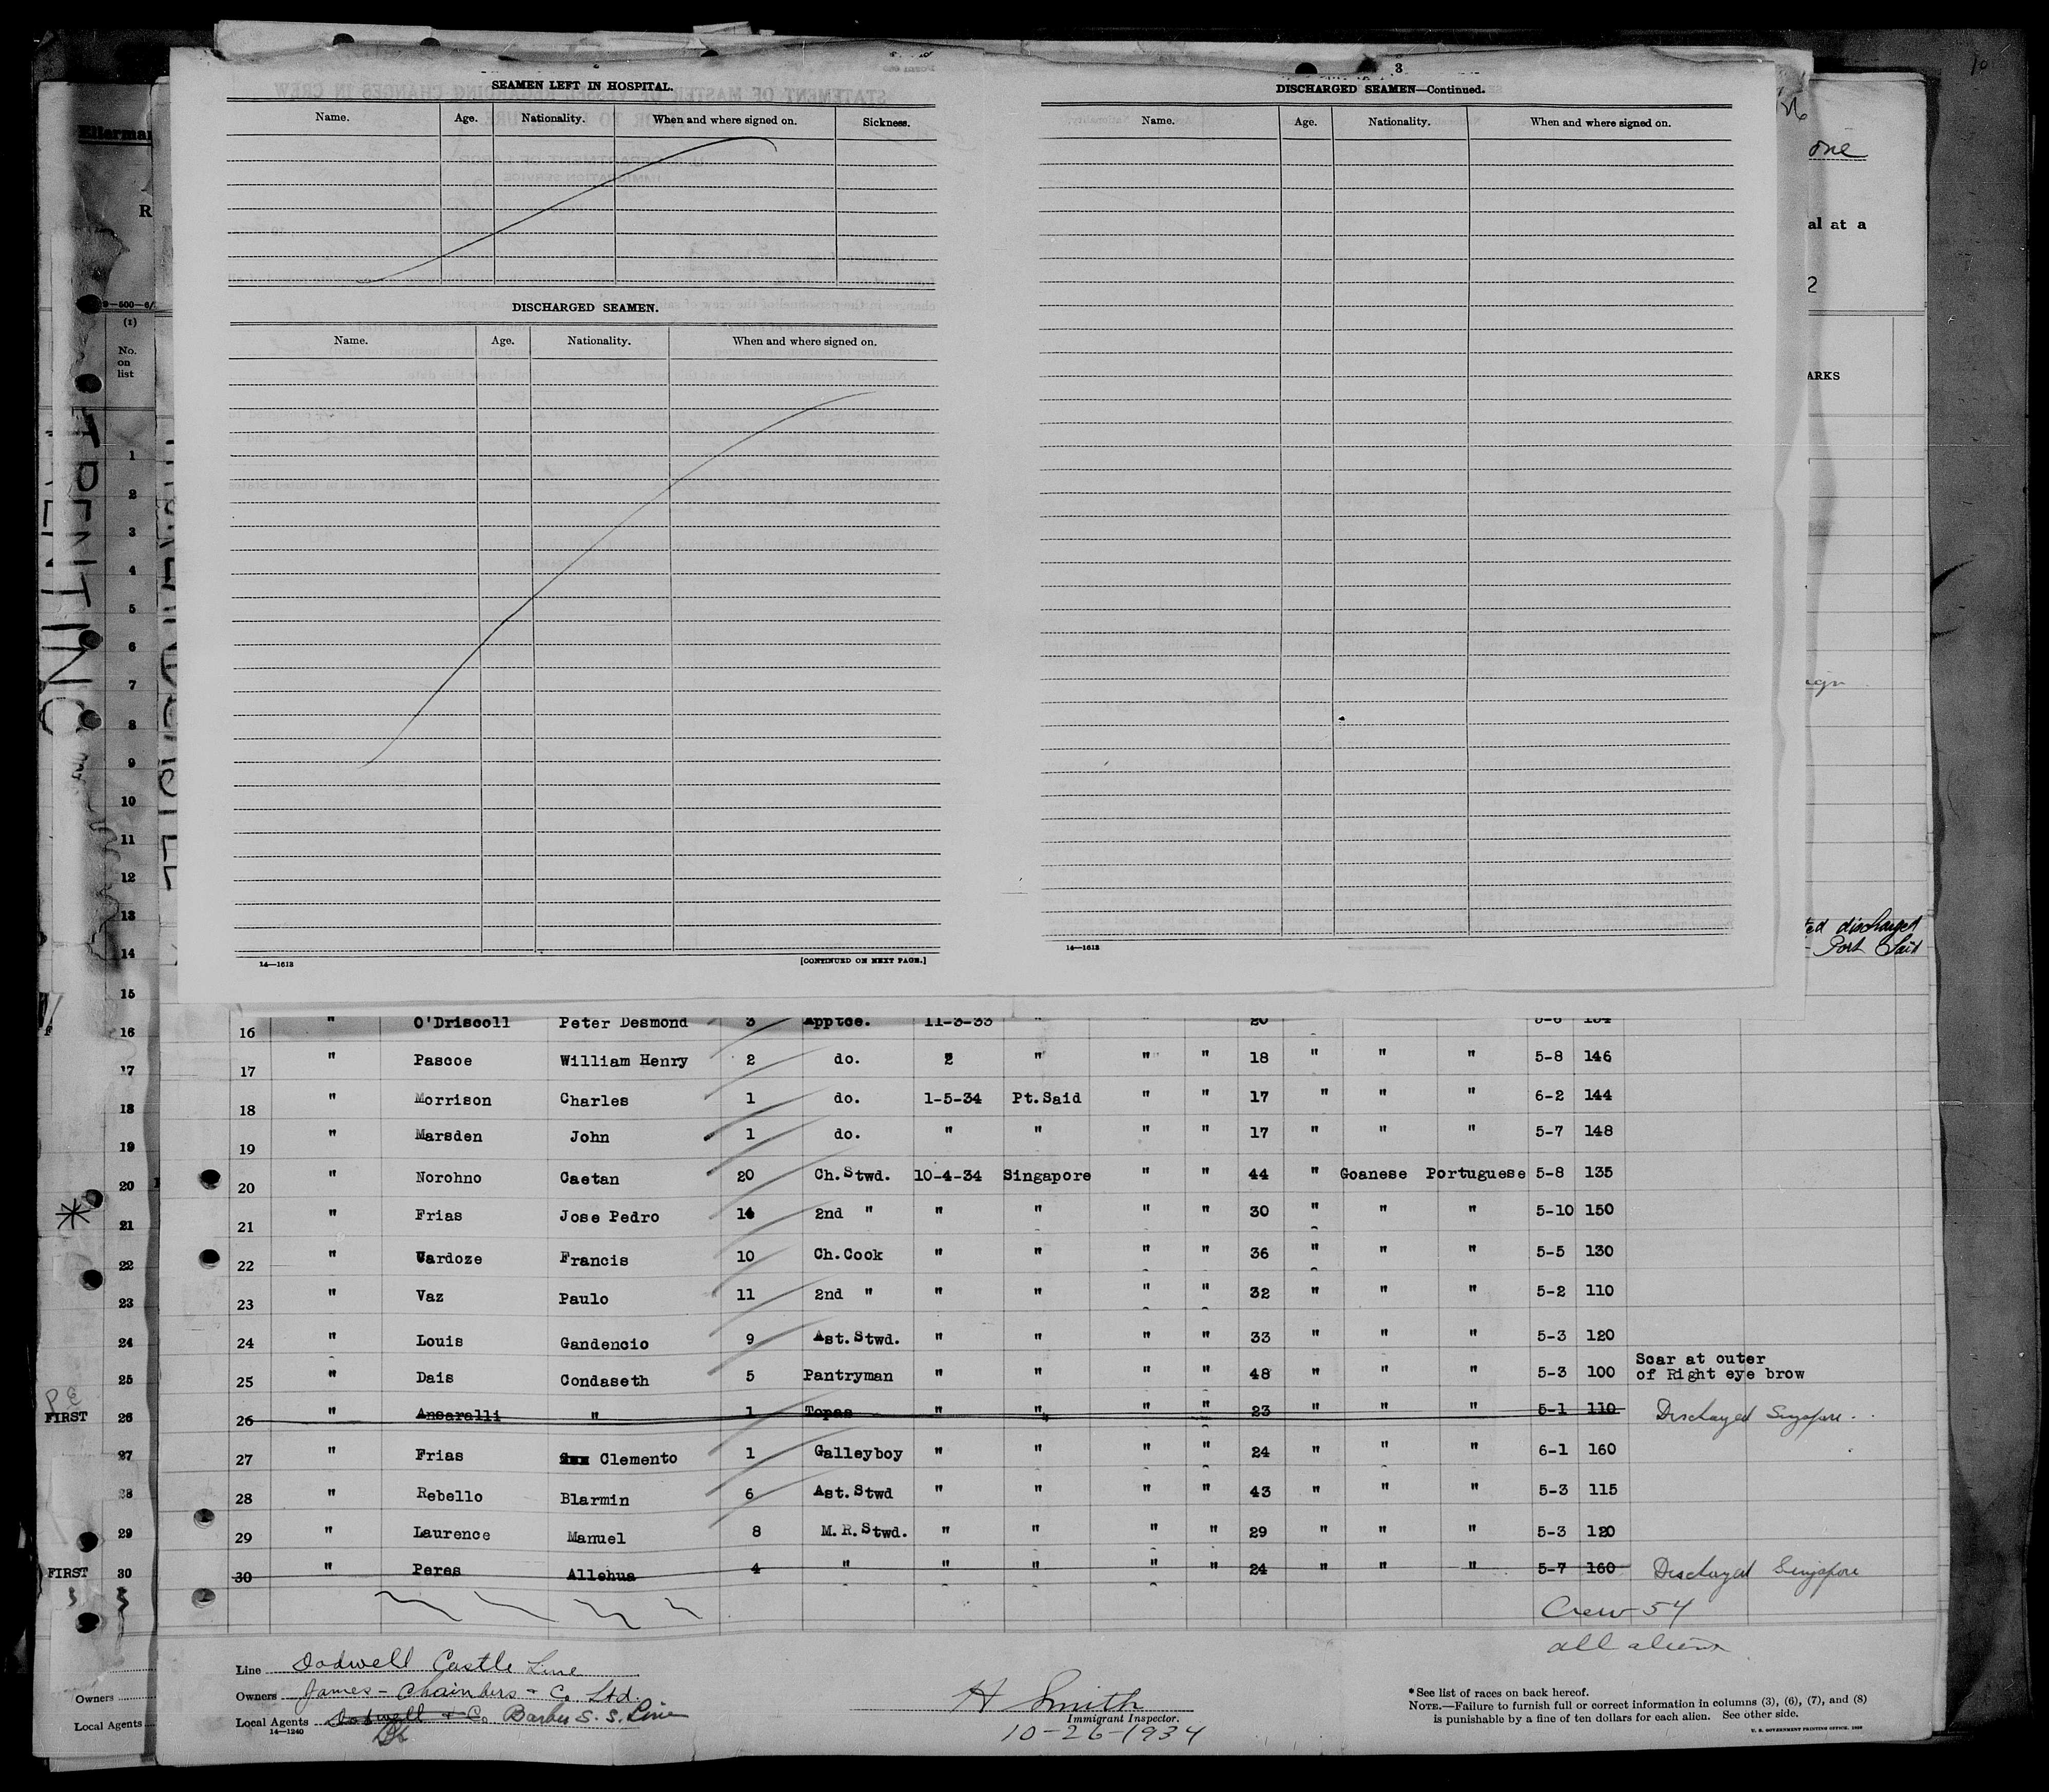 3
SEAMEN LEFT IN HOSPITAL.
Name. Age. Nationality. When and where signed on. Sickness.
DISCHARGED SEAMEN.
Name. Age. Nationality. When and where signed on.
14—1613 [CONTINUED ON NEXT PAGE.]
DISCHARGED SEAMEN—Continued.
Name. Age. Nationality. When and where signed on.
14—1613
Ellerman
R
(1)
No.
on
list
1
2
3
4
5
6
7
8
9
10
11
12
13
14
15
16
17
18
19
20
21
22
23
24
25
FIRST 26
27
28
29
FIRST 30
Owners
Local Agents
one
al at a
2
ARKS
ted discharged
Port Said
16 " O'Driscoll Peter Desmond 3 Apptce. 11-3-33 " 20 5-6 154
17 " Pascoe William Henry 2 do. " " " " 18 " " " 5-8 146
18 " Morrison Charles 1 do. 1-5-34 Pt.Said " " 17 " " " 6-2 144
19 " Marsden John 1 do. " " " " 17 " " " 5-7 148
20 " Norohno Caetan 20 Ch.Stwd. 10-4-34 Singapore " " 44 " Goanese Portuguese 5-8 135
21 " Frias Jose Pedro 14 2nd " " " " " 30 " " " 5-10 150
22 " Cardoze Francis 10 Ch.Cook " " " " 36 " " " 5-5 130
23 " Vaz Paulo 11 2nd " " " " " 32 " " " 5-2 110
24 " Louis Gandencio 9 Ast.Stwd. " " " " 33 " " " 5-3 120
25 " Dais Condaseth 5 Pantryman " " " " 48 " " " 5-3 100 Scar at outer
of Right eye brow
26 " Ansaralli " 1 Topas " " " " 23 " " " 5-1 110 Discharged Singapore.
27 " Frias Clemento 1 Galleyboy " " " " 24 " " " 6-1 160
28 " Rebello Blarmin 6 Ast.Stwd " " " " 43 " " " 5-3 115
29 " Laurence Manuel 8 M.R.Stwd. " " " " 29 " " " 5-3 120
30 " Peres Allehua 4 " " " " " 24 " " " 5-7 160 Discharged Singapore
Crew 54
all aliens
Line Dodwell Castle Line
Owners James Chambers & Co Ltd.
Local Agents Dodwell & Co Barber S.S. Line
14—1240
H Smith
Immigrant Inspector.
10-26-1934
* See list of races on back hereof.
NOTE.—Failure to furnish full or correct information in columns (3), (6), (7), and (8)
is punishable by a fine of ten dollars for each alien. See other side.
U. S. GOVERNMENT PRINTING OFFICE